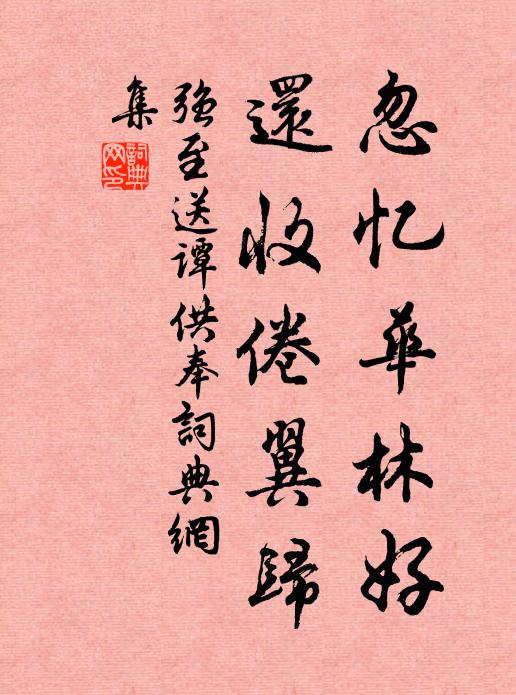 忽忆華林好
還收倦翼歸
强至送谭供奉詞典網
集
詞典网印